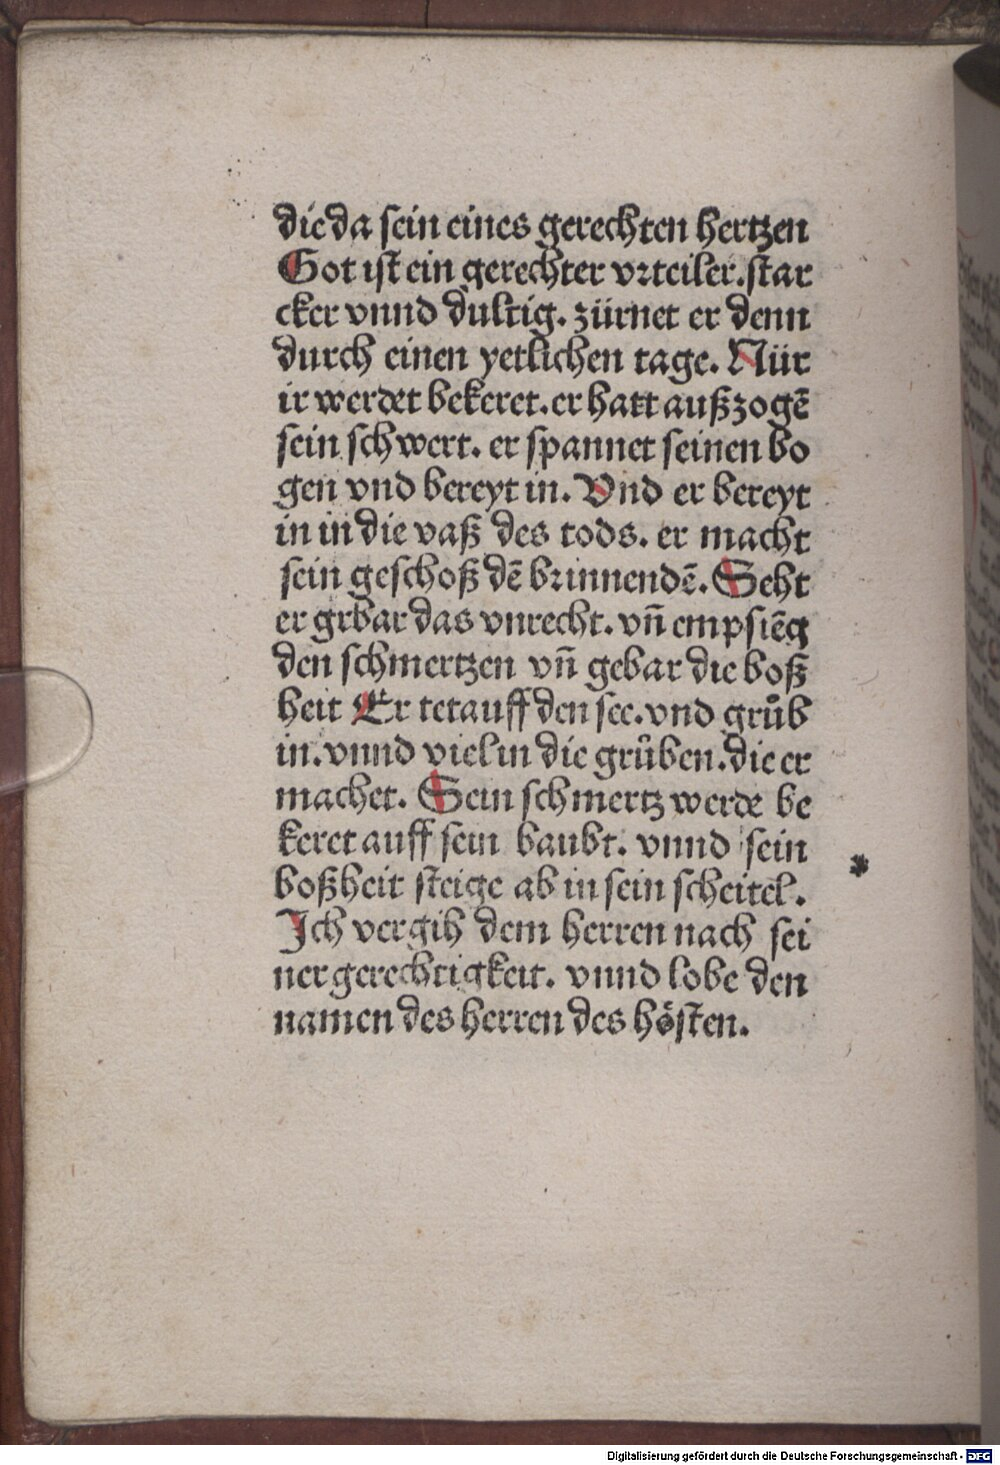 die da sein eines gerechten hertzen
Got ist ein gerechter vrteiler. star
cker vnnd dultig. zürnet er denn
durch einen yetlichen tage. Nür
ir werdet bekeret. er hatt außzogē
sein schwert. er spannet seinen bo
gen vnd bereyt in. Vnd er bereyt
in in die vaß des tods. er macht
sein geschoß dē brinnendē. Seht
er grbar das vnrecht. vn̄ empsiēg
den schmertzen vn̄ gebar die boß
heit Er tet auff den see. vnd grůb
in. vnnd viel in die grůben. die er
machet. Sein schmertz werde be
keret auff sein baubt. vnnd sein
boßheit steige ab in sein scheitel.
Ich vergih dem herren nach sei
ner gerechtigkeit. vnnd lobe den
namen des herren des hösten.
Digitalisierung gefördert durch die Deutsche Forschungsgemeinschaft - DFG